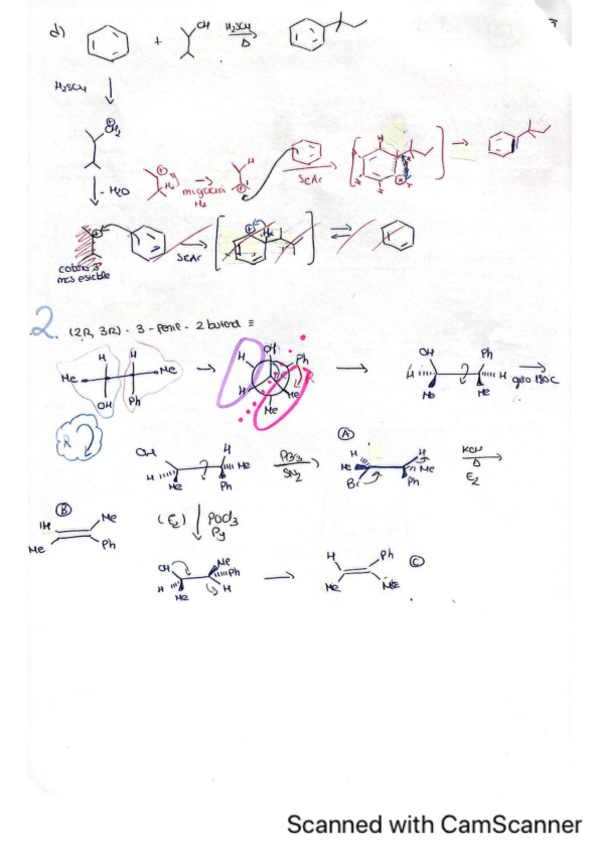 d)
+
OH
H₂SO₄
Δ
H₂SO₄
⊕
CH₂
- H₂O
H
migración
SEAr
H
SEAr
más estable
2. (2R, 3R) - 3 - fenil - 2 butanol ≡
H
H
Me
Me
OH
Ph
OH
H
Ph
H
Me
Me
OH
Ph
H
H
Me
Me
giro 180°C
R
OH
H
H
Me
Me
Ph
PBr₃
SN₂
A
H
H
Me
Me
Br
Ph
KOH
Δ
E₂
B
H
Me
Me
Ph
(E₂)
POCl₃
Py
OH
Me
Ph
H
Me
H
H
Ph
Me
Me
C
Scanned with CamScanner